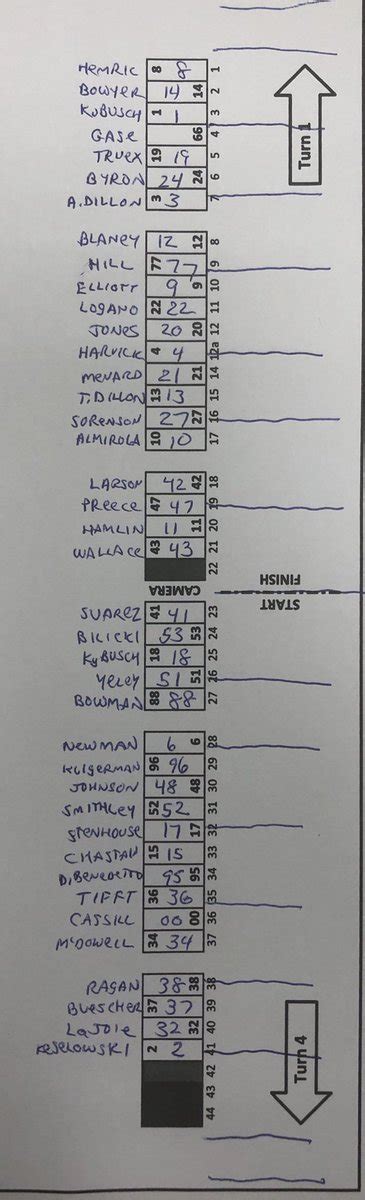 HEMRIC 8 8 1
BOWYER 14 14 2
KUBUSCH 1 1 3
GASE 66 4
TRUEX 19 19 5
BYRON 24 24 6
A.DILLON 3 3 7
Turn 1
BLANEY 12 12 8
HILL 77 77 9
ELLIOTT 9 9 10
LOGANO 22 22 11
JONES 20 20 12
HARVICK 4 4 12a
MENARD 21 21 14
T.DILLON 13 13 15
SORENSON 27 27 16
ALMIROLA 10 10 17
LARSON 42 42 18
PREECE 47 47 19
HAMLIN 11 11 20
WALLACE 43 43 21
22
CAMERA
FINISH
START
SUAREZ 41 41 23
BILICKI 53 53 24
KyBUSCH 18 18 25
YELEY 51 51 26
BOWMAN 88 88 27
NEWMAN 6 6 28
KLIGERMAN 96 96 29
JOHNSON 48 48 30
SMITHLEY 52 52 31
STENHOUSE 17 17 32
CHASTAIN 15 15 33
DIBENEDETTO 95 95 34
TIFFT 36 36 35
CASSILL 00 00 36
McDOWELL 34 34 37
RAGAN 38 38 38
BUESCHER 37 37 39
LAJOIE 32 32 40
KESELOWSKI 2 2 41
42
43
44
Turn 4